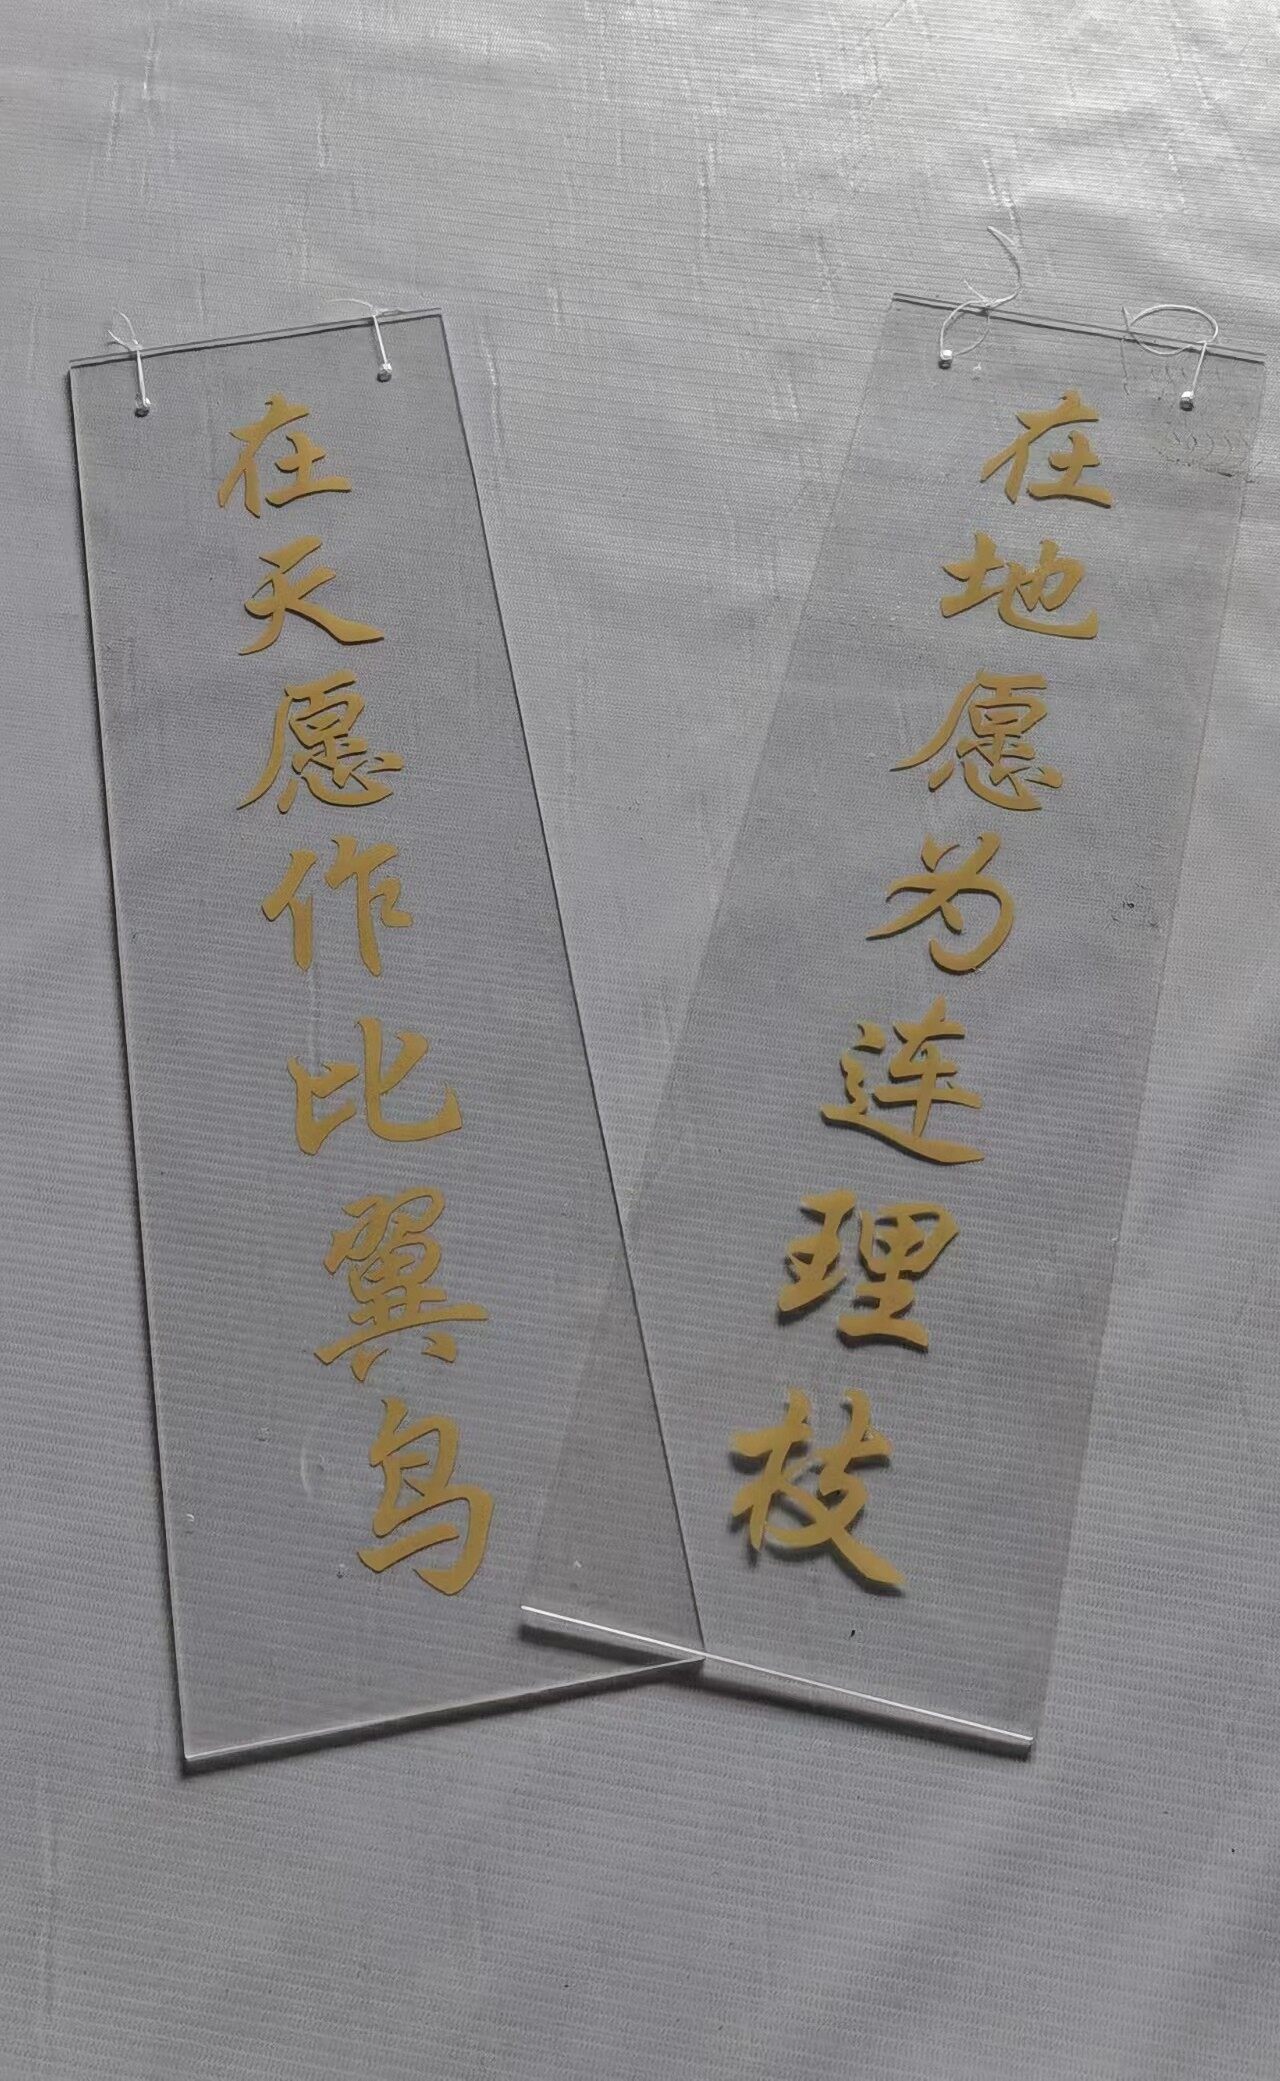 在天愿作比翼鸟
在地愿为连理枝